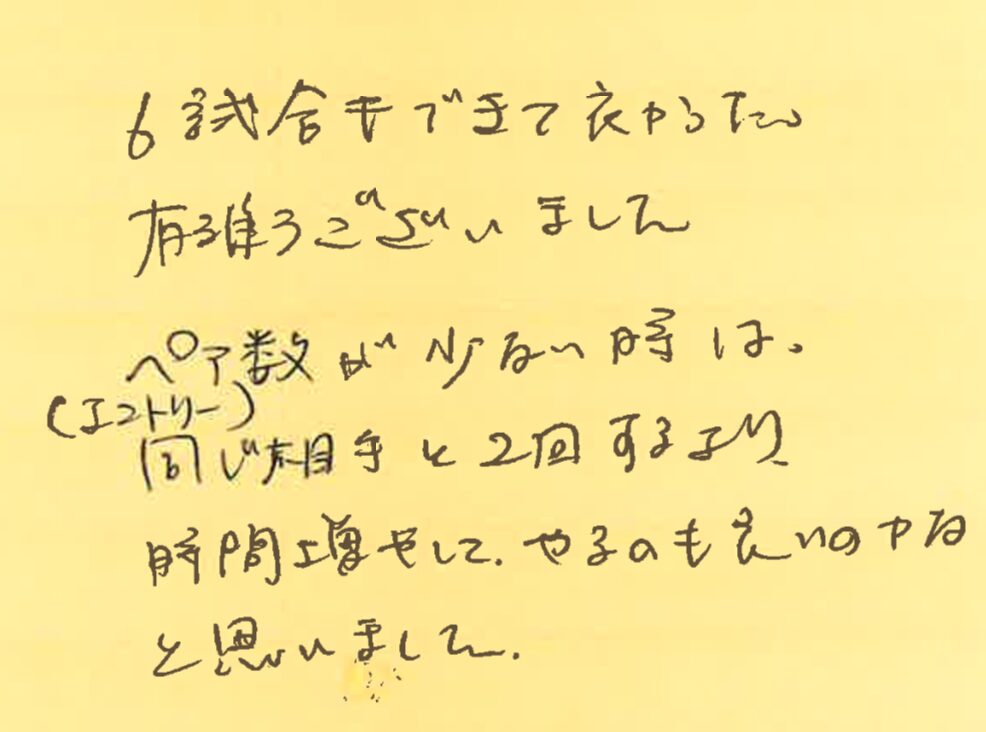 6試合もできて良かった。
有難うございました
ペア数が少ない時は、
(エントリー)
同じ相手と2回するより
時間増やして、やるのも良いのかな
と思いました。